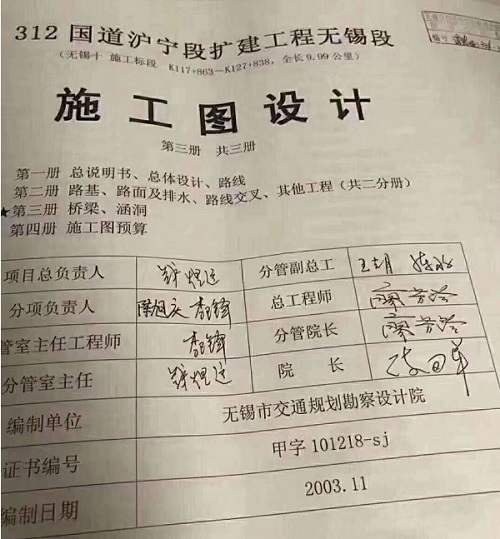 312国道沪宁段扩建工程无锡段
(无锡十 施工标段 K117+863—K127+838, 全长9.99公里)
施工图设计
第三册 共三册
第一册 总说明书、总体设计、路线
第二册 路基、路面及排水、路线交叉、其他工程(共二分册)
★第三册 桥梁、涵洞
第四册 施工图预算
项目总负责人 分管副总工
分项负责人 总工程师
管室主任工程师 李锋 分管院长
分管室主任 院 长
编制单位 无锡市交通规划勘察设计院
证书编号 甲字 101218-sj
编制日期 2003.11